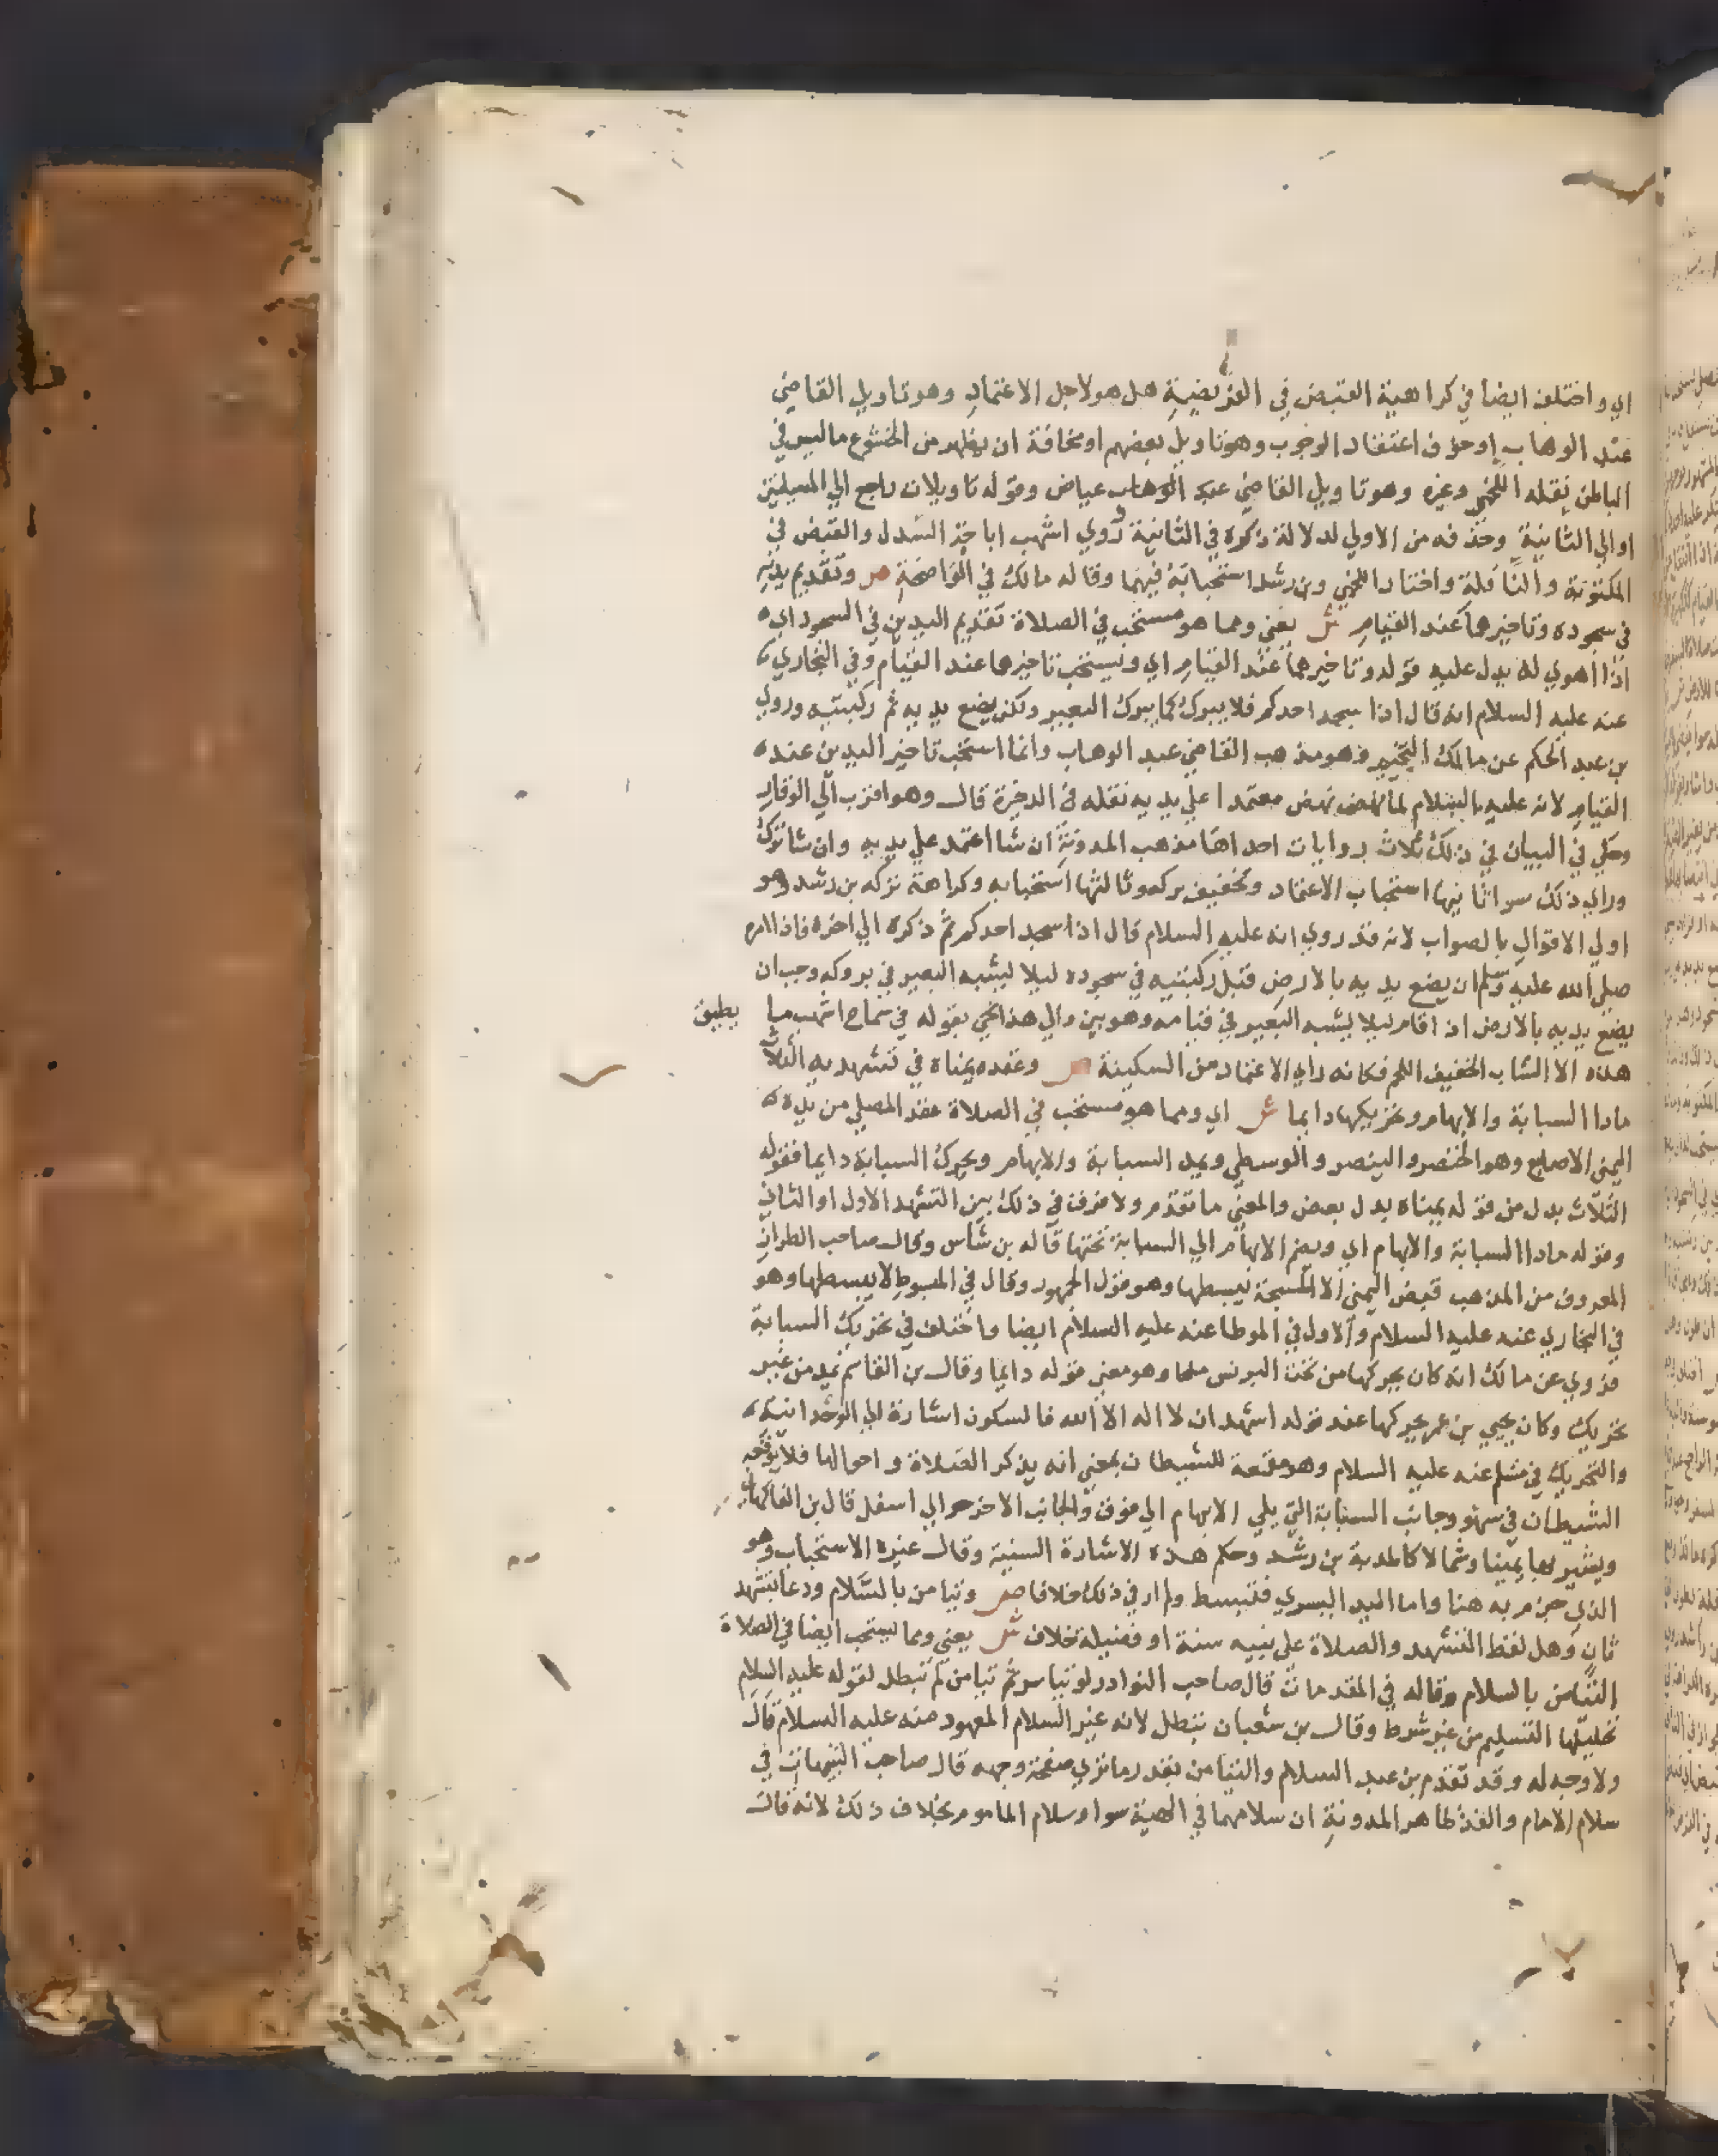 اي واختلف ايضا في كراهية القبض في الفريضة هل هو لاجل الاعتماد وهو تاويل القاضي
عبد الوهاب او خوف اعتقاد الوجوب وهو تاويل بعضهم او مخافة ان يظهر من الخشوع ما ليس في
الباطن نقله اللخمي وغيره وهو تاويل القاضي عبد الوهاب عياض وقوله تاويلات راجع الي المسيلتين
او الي الثانية وحذفه من الاولي لدلالة ذكره في الثانية وروي اشهب اباحة السدل والقبض في
المكتوبة والنافلة واختار اللخمي وبن رشد استحبابه فيهما وقاله مالك في الواضحة ص وتقديم يديه
في سجوده وتاخيرهما عند القيام ش يعني ومما هو مستحب في الصلاة تقديم اليدين في السجود اي
اذا اهوي له يدل عليه قوله وتاخيرهما عند القيام اي ويستحب تاخيرهما عند القيام وفي البخاري
عنه عليه السلام انه قال اذا سجد احدكم فلا يبرك كما يبرك البعير ولكن يضع يديه ثم ركبتيه وروي
بن عبد الحكم عن مالك التخيير وهو مذهب القاضي عبد الوهاب وانما استحب تاخير اليدين عند
القيام لانه عليه السلام لما نهض نهض معتمدا علي يديه نقله في الدخيرة قال وهو اقرب الي الوقار
وحكي في البيان في ذلك ثلاث روايات احداها مذهب المدونة ان شا اعتمد علي يديه وان شا ترك
وراي ذلك سوا ثانيها استحباب الاعتماد وتخفيف تركه وثالثها استحبابه وكراهة تركه بن رشد وهو
اولي الاقوال بالصواب لانه قد روي انه عليه السلام قال اذا سجد احدكم ثم ذكره الي اخره فاذا امر
صلي الله عليه وسلم ان يضع يديه بالارض قبل ركبتيه في سجوده ليلا يشبه البعير في بروكه وجب ان
يضع يديه بالارض اذا قام ليلا يشبه البعير في قيامه وهو بين والي هذا نحي بقوله في سماع اشهب ما يطيق
هذا الا الشاب الخفيف اللحم فكانه راي الاعتماد من السكينة ص وعقده يمناه في تشهديه الثلاث
مادا السبابة والابهام وتحريكها دايما ش اي ومما هو مستحب في الصلاة عقد المصلي من يده
اليمني الاصابع وهو الخنصر والبنصر والوسطي ويمد السبابة والابهام ويحرك السبابة دايما فقوله
الثلاث بدل من قوله يمناه بدل بعض والمعني ما تقدم ولا فرق في ذلك بين التشهد الاول او الثاني
وقوله مادا السبابة والابهام اي ويضم الابهام الي السبابة تحتها قاله بن شاس وقال صاحب الطراز
المعروف من المذهب قبض اليمني الا المسبحة يبسطها وهو قول الجمهور وقال في المبسوط لا يبسطها وهو
في البخاري عنه عليه السلام والاول في الموطا عنه عليه السلام ايضا واختلف في تحريك السبابة
فروي عن مالك انه كان يحركها من تحت البرنس ملحا وهو معني قوله دايما وقال بن القاسم يمد من غير
تحريك وكان يحيي بن عمر يحركها عند قوله اشهد ان لا اله الا الله فالسكون اشارة الي الوحدانية
والتحريك في مسلم عنه عليه السلام وهو مقمعة للشيطان بمعني انه يذكر الصلاة واحوالها فلا يوقعه
الشيطان في سهو وجانب السبابة التي يلي الابهام الي فوق والجانب الاخر الي اسفل قال بن الفاكهاني
ويشير بها يمينا وشمالا كالمدية بن رشد وحكم هذه الاشارة السنية وقال غيره الاستحباب وهو
الذي جزم به هنا واما اليد اليسري فتبسط ولم ار في ذلك خلافا ص وتيامن بالسلام ودعا بتشهد
ثان وهل لفظ التشهد والصلاة علي نبيه سنة او فضيلة خلاف ش يعني ومما يستحب ايضا في الصلاة
التيامن بالسلام وقاله في المقدمات قال صاحب النوادر لو تياسر ثم تيامن لم تبطل لقوله عليه السلام
تحليلها التسليم من غير شرط وقال بن شعبان تبطل لانه غير السلام المعهود منه عليه السلام قال
ولا وجه له وقد تقدم بن عبد السلام والتيامن بقدر ما تري صفحة وجهه قال صاحب التنبيهات في
سلام الامام والفذ ظاهر المدونة ان سلامهما في الهيئة سوا وسلام الماموم بخلاف ذلك لانه قال